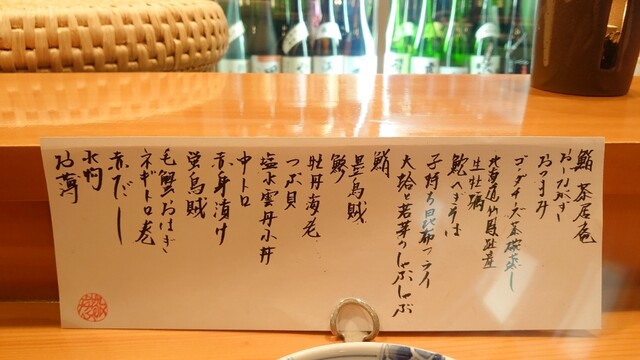 鮨 茶屋庵
おしながき
おつまみ
ゴッダチ大茶碗蒸し
北海道仙鳳趾産
生牡蠣
鮑へぎそば
子持ち昆布フライ
大蛤と若芽のしゃぶしゃぶ
鮨
墨烏賊
鯵
牡丹海老
つぶ貝
塩水雲丹小丼
中トロ
赤身漬け
蛍烏賊
毛蟹おはぎ
ネギトロ巻
赤だし
水物
お薄